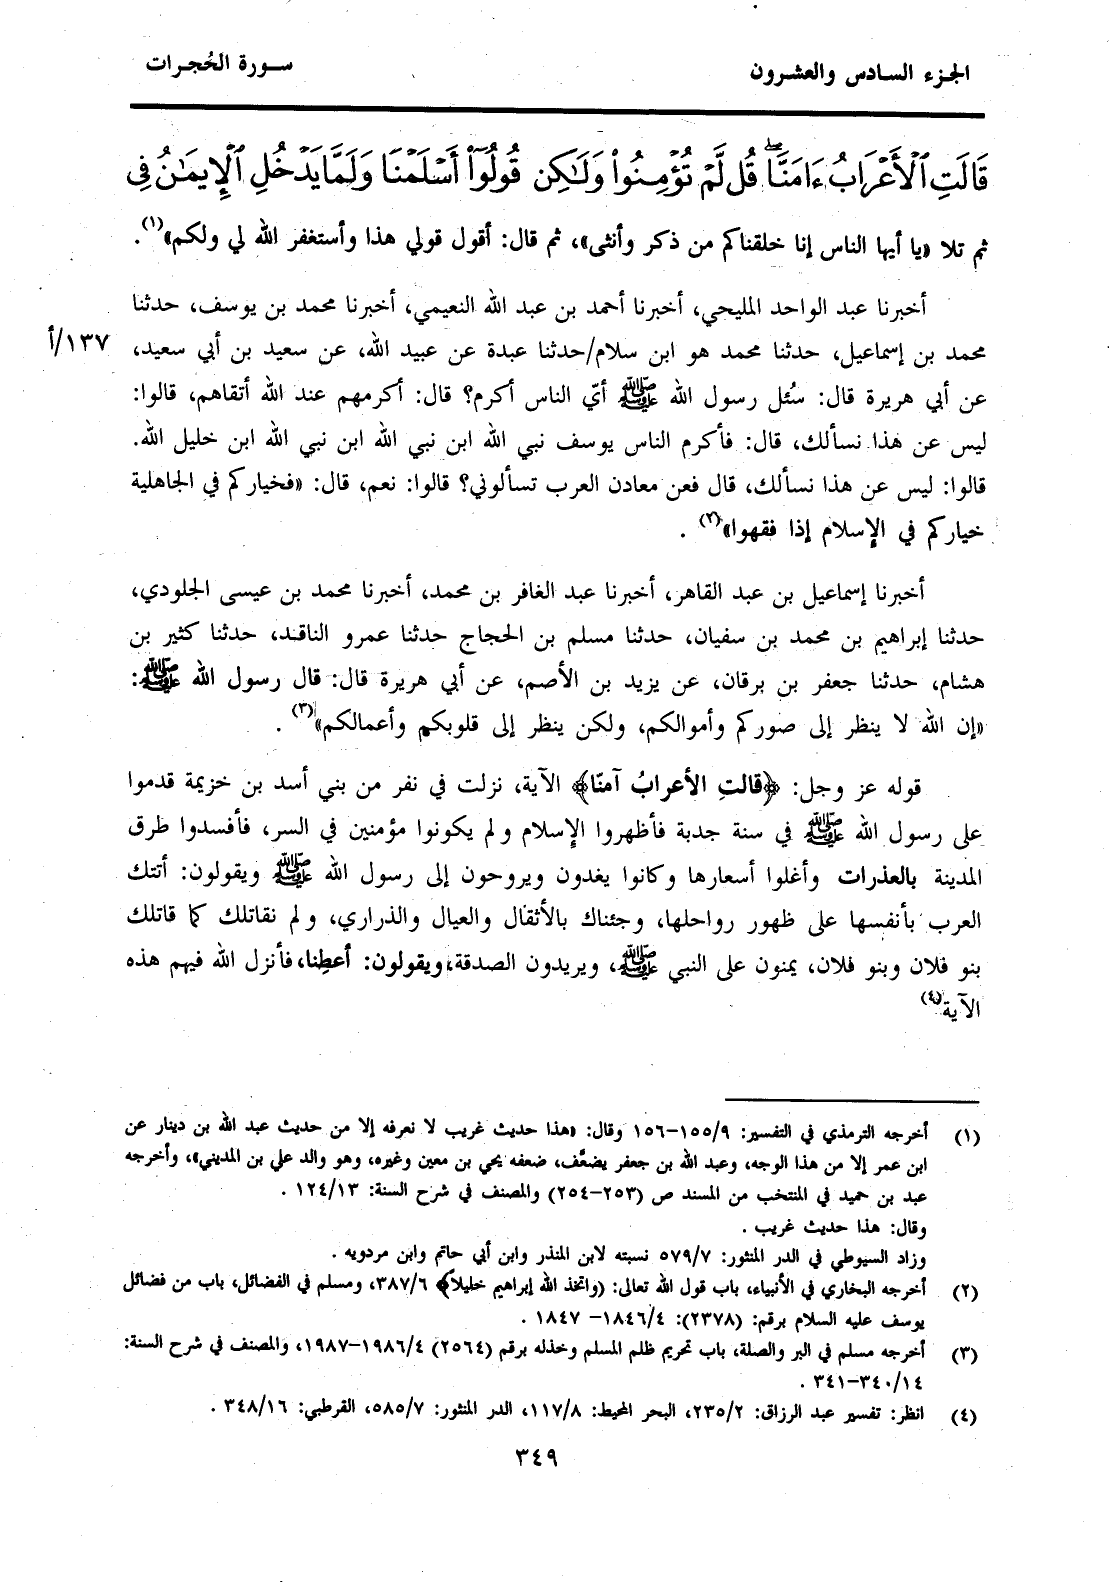 الجزء السادس والعشرون
سورة الحُجرات
قَالَتِ ٱلْأَعْرَابُ ءَامَنَّا ۖ قُل لَّمْ تُؤْمِنُوا۟ وَلَـٰكِن قُولُوٓا۟ أَسْلَمْنَا وَلَمَّا يَدْخُلِ ٱلْإِيمَـٰنُ فِى
ثم تلا «يا أيها الناس إنا خلقناكم من ذكر وأنثى»، ثم قال: أقول قولي هذا وأستغفر الله لي ولكم»(١).
أخبرنا عبد الواحد المليحي، أخبرنا أحمد بن عبد الله النعيمي، أخبرنا محمد بن يوسف، حدثنا
محمد بن إسماعيل، حدثنا محمد هو ابن سلام/حدثنا عبدة عن عبيد الله، عن سعيد بن أبي سعيد،
١٣٧/أ
عن أبي هريرة قال: سُئل رسول الله ﷺ أيّ الناس أكرم؟ قال: أكرمهم عند الله أتقاهم، قالوا:
ليس عن هذا نسألك، قال: فأكرم الناس يوسف نبي الله ابن نبي الله ابن نبي الله ابن خليل الله.
قالوا: ليس عن هذا نسألك، قال فعن معادن العرب تسألوني؟ قالوا: نعم، قال: «فخياركم في الجاهلية
خياركم في الإسلام إذا فقهوا»(٢) .
أخبرنا إسماعيل بن عبد القاهر، أخبرنا عبد الغافر بن محمد، أخبرنا محمد بن عيسى الجلودي،
حدثنا إبراهيم بن محمد بن سفيان، حدثنا مسلم بن الحجاج حدثنا عمرو الناقد، حدثنا كثير بن
هشام، حدثنا جعفر بن برقان، عن يزيد بن الأصم، عن أبي هريرة قال: قال رسول الله ﷺ:
«إن الله لا ينظر إلى صوركم وأموالكم، ولكن ينظر إلى قلوبكم وأعمالكم»(٣) .
قوله عز وجل: ﴿قالتِ الأعرابُ آمنّا﴾ الآية، نزلت في نفر من بني أسد بن خزيمة قدموا
على رسول الله ﷺ في سنة جدبة فأظهروا الإسلام ولم يكونوا مؤمنين في السر، فأفسدوا طرق
المدينة بالعذرات وأغلوا أسعارها وكانوا يغدون ويروحون إلى رسول الله ﷺ ويقولون: أتتك
العرب بأنفسها على ظهور رواحلها، وجئناك بالأثقال والعيال والذراري، ولم نقاتلك كما قاتلك
بنو فلان وبنو فلان، يمنون على النبي ﷺ، ويريدون الصدقة، ويقولون: أعطِنا، فأنزل الله فيهم هذه
الآية(٤)
(١) أخرجه الترمذي في التفسير: ١٥٥/٩-١٥٦ وقال: «هذا حديث غريب لا نعرفه إلا من حديث عبد الله بن دينار عن
ابن عمر إلا من هذا الوجه، وعبد الله بن جعفر يضعَّف، ضعفه يحي بن معين وغيره، وهو والد علي بن المديني»، وأخرجه
عبد بن حميد في المنتخب من المسند ص (٢٥٣-٢٥٤) والمصنف في شرح السنة: ١٢٤/١٣ .
وقال: هذا حديث غريب .
وزاد السيوطي في الدر المنثور: ٥٧٩/٧ نسبته لابن المنذر وابن أبي حاتم وابن مردويه .
(٢) أخرجه البخاري في الأنبياء، باب قول الله تعالى: (واتخذ الله إبراهيم خليلا﴾ ٣٨٧/٦، ومسلم في الفضائل، باب من فضائل
يوسف عليه السلام برقم: (٢٣٧٨): ١٨٤٦/٤- ١٨٤٧ .
(٣) أخرجه مسلم في البر والصلة، باب تحريم ظلم المسلم وخذله برقم (٢٥٦٤) ١٩٨٦/٤-١٩٨٧، والمصنف في شرح السنة:
٣٤٠/١٤-٣٤١ .
(٤) انظر: تفسير عبد الرزاق: ٢٣٥/٢، البحر المحيط: ١١٧/٨، الدر المنثور: ٥٨٥/٧، القرطبي: ٣٤٨/١٦ .
٣٤٩